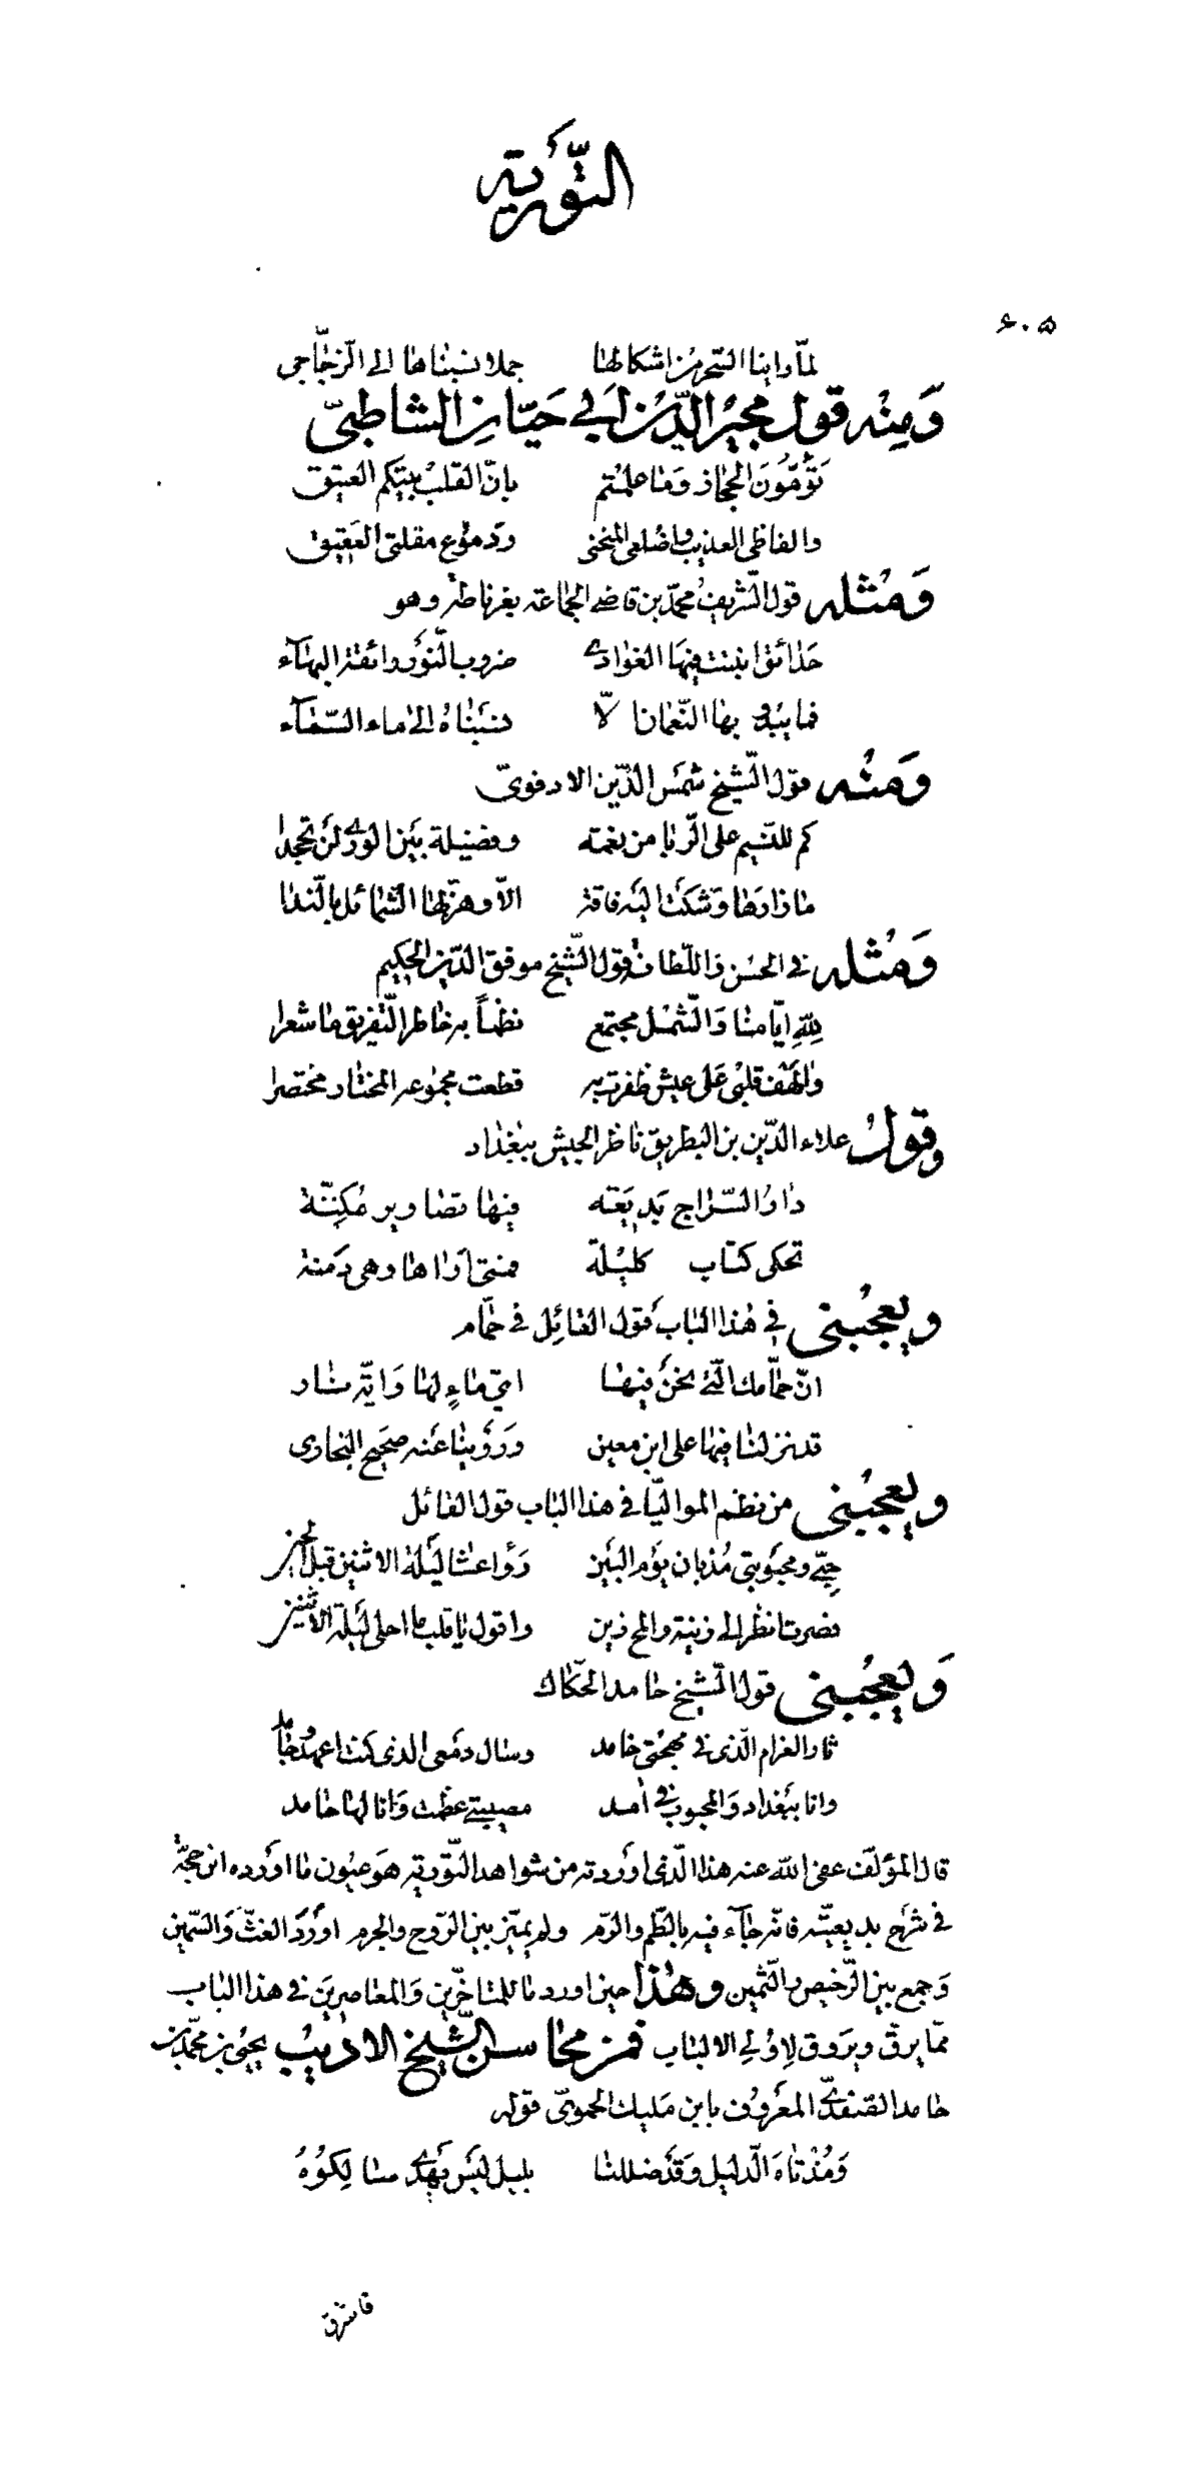 التَّوْرية
٤٠٥
لمّا راينا السّحر من اشكالها جملا نسبناها الى الزّجّاجي
وَمِنْه قول مجير الدّين ابي حيّان الشاطبيّ
تَؤُمّونَ الحجاز وَما علمتم بانّ القلب بيتكم العتيق
والفاظي العذيب واضلعي المنحنى ودموع مقلتي العقيق
وَمثله قول الشّريف محمّد بن قاضي الجماعة بغرناطة وهو
حدائق انبتت فيها الغوادي ضروب النّور رائقة البهآء
فما يبدو بها النّعمان الّا نسبناه الى ماء السّمآء
وَمنه قول الشّيخ شمس الدّين الادفويّ
كم للنّسيم على الرّبا من نعمة وفضيلة بين الورى لن تجحدا
ما زارها وشكت اليه فاقة الّا وهزّ لها الشّمائل بالنّدا
وَمثله في الحسن واللّطافة قول الشّيخ موفق الدّين الحكيم
لِلّهِ ايّامنا وَالشّمل مجتمع نظماً به خاطر التّفريق ما شعرا
والهف قلبي عَلى عيش ظفرت به قطعت مجموعه المختار مختصرا
وقول علاء الدّين بن البطريق ناظر الجيش ببغداد
دار السّراج بَديعَة فيها تصاوير مُكِنّة
تحكي كتاب كليلة فمتى اَراها وهي دمنة
ويعجبني في هذا الباب قول القائل في حمّام
انّ حمّامك الّتي نحن فيها ايّ ماءٍ لها وَايّة نار
قد نزلنا فيها على ابن معين ورَوَينا عنه صحيح البخاري
ويعجبني من نظم المواليّا في هذا الباب قول القائل
حِبّي ومحبوبتي مُذ بان يوم البَين رَوّاعشا ليلة الاثنين قبل
فصرت انظر الى زينة والمح زين واقول يا قلب ما احلى ليلة الاثنين
وَيعجبني قول الشّيخ حامد الحكّاك
ثار الغرام الّذي في مهجتي خامد وسال دمعي الذي كنت اعهده جامد
وانا ببغداد وَالمحبوب في امد مصيبتي عظمت وَانا لها حامد
قال المؤلّف عفى الله عنه هذا الّذي اوردته من شواهد التّورية هو عيون ما اورده ابن حجّة
في شرح بديعيّته فانّه جآء فيه بالطّم والرّم ولم يميّز بين الرّوح والجرم اورَدَ الغثّ وَالسّمين
وَجمع بين الرّخيص والثّمين وهذا حين اورد ما للمتأخّرين وَالمعاصرين في هذا الباب
ممّا يرقّ ويروق لاِولي الالباب فمن محاسن الشّيخ الاديب يحيى بن محمّد بن
حامد الصّفديّ المعروف بابن مَليك الحمويّ قوله
وَمُذْ تاه الدّليل وَقَد ضللنا بليل لَيسَ يَهدي سالِكوُهُ
فاشرق